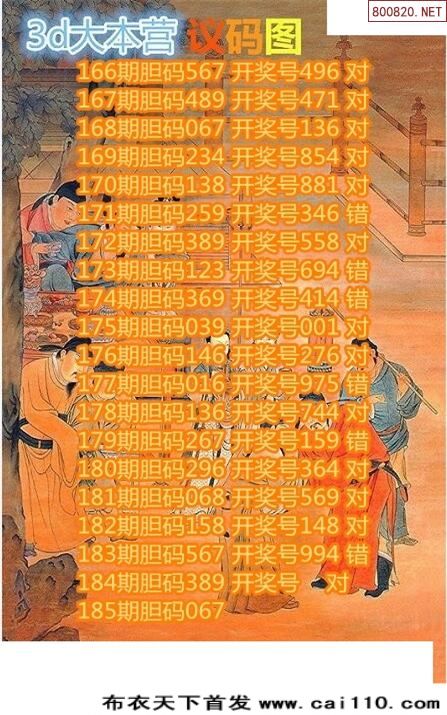 800820.NET
3d大本营 议码图
166期胆码567 开奖号496 对
167期胆码489 开奖号471 对
168期胆码067 开奖号136 对
169期胆码234 开奖号854 对
170期胆码138 开奖号881 对
171期胆码259 开奖号346 错
172期胆码389 开奖号558 对
173期胆码123 开奖号694 错
174期胆码369 开奖号414 错
175期胆码039 开奖号001 对
176期胆码146 开奖号276 对
177期胆码016 开奖号975 错
178期胆码136 开奖号744 对
179期胆码267 开奖号159 错
180期胆码296 开奖号364 对
181期胆码068 开奖号569 对
182期胆码158 开奖号148 对
183期胆码567 开奖号994 错
184期胆码389 开奖号 对
185期胆码067
布衣天下首发 www.cai110.com